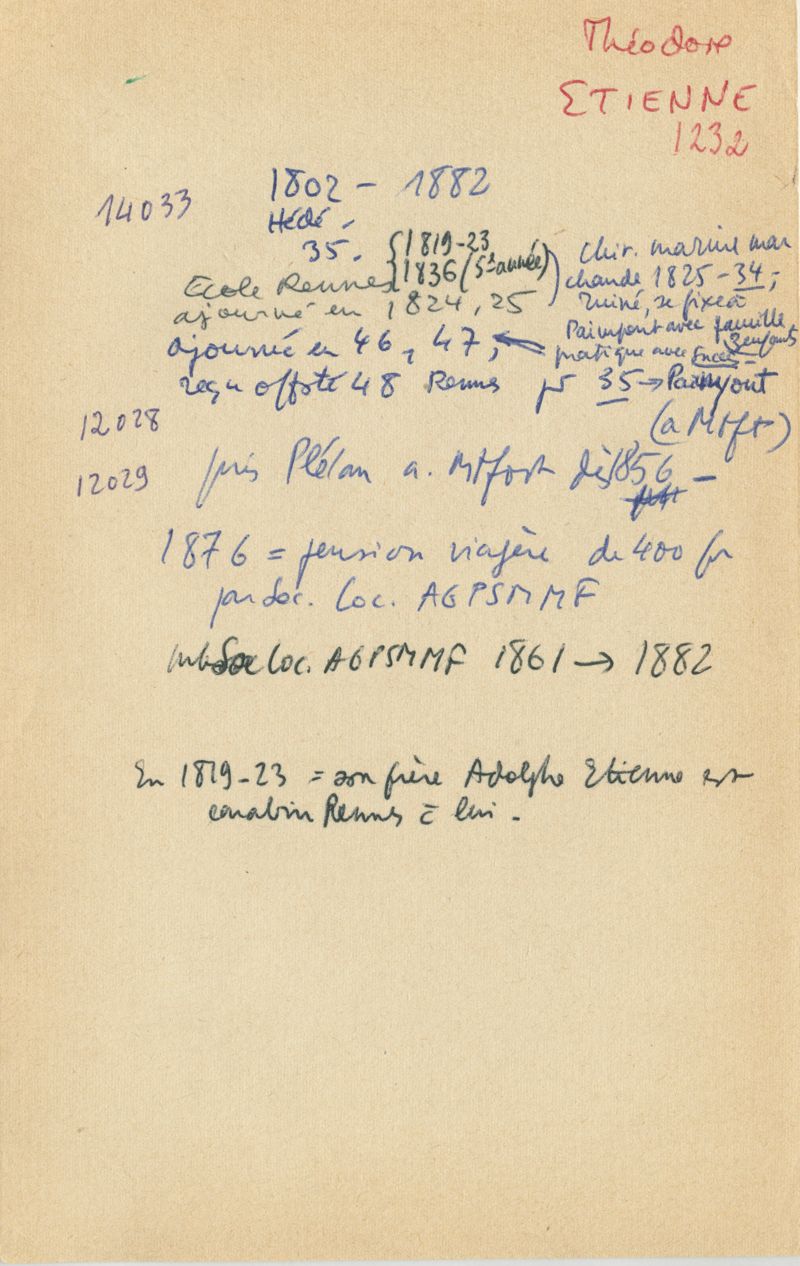 Théodore
ETIENNE
1232
14033
1802 - 1882
Hédé -
35.
{ 1819-23
1836 (5è année)
Ecole Rennes
ajourné en 1824, 25
Chir. marine mar
chande 1825-34;
ruiné, se fixe à
Paimpont avec famille,
3 enfants
pratique avec succès -
ajourné en 46, 47,
reçu off sté 48 Rennes pr 35 → Paimpont
(a Mtft)
12028
12029
puis Plélan a. Mtfort dès 1856 -
1876 = pension viagère de 400 fr
par Soc. loc. AGPSMMF
Soc loc. AGPSMMF 1861 → 1882
En 1819-23 = son frère Adolphe Etienne est
carabin Rennes c̄ lui -